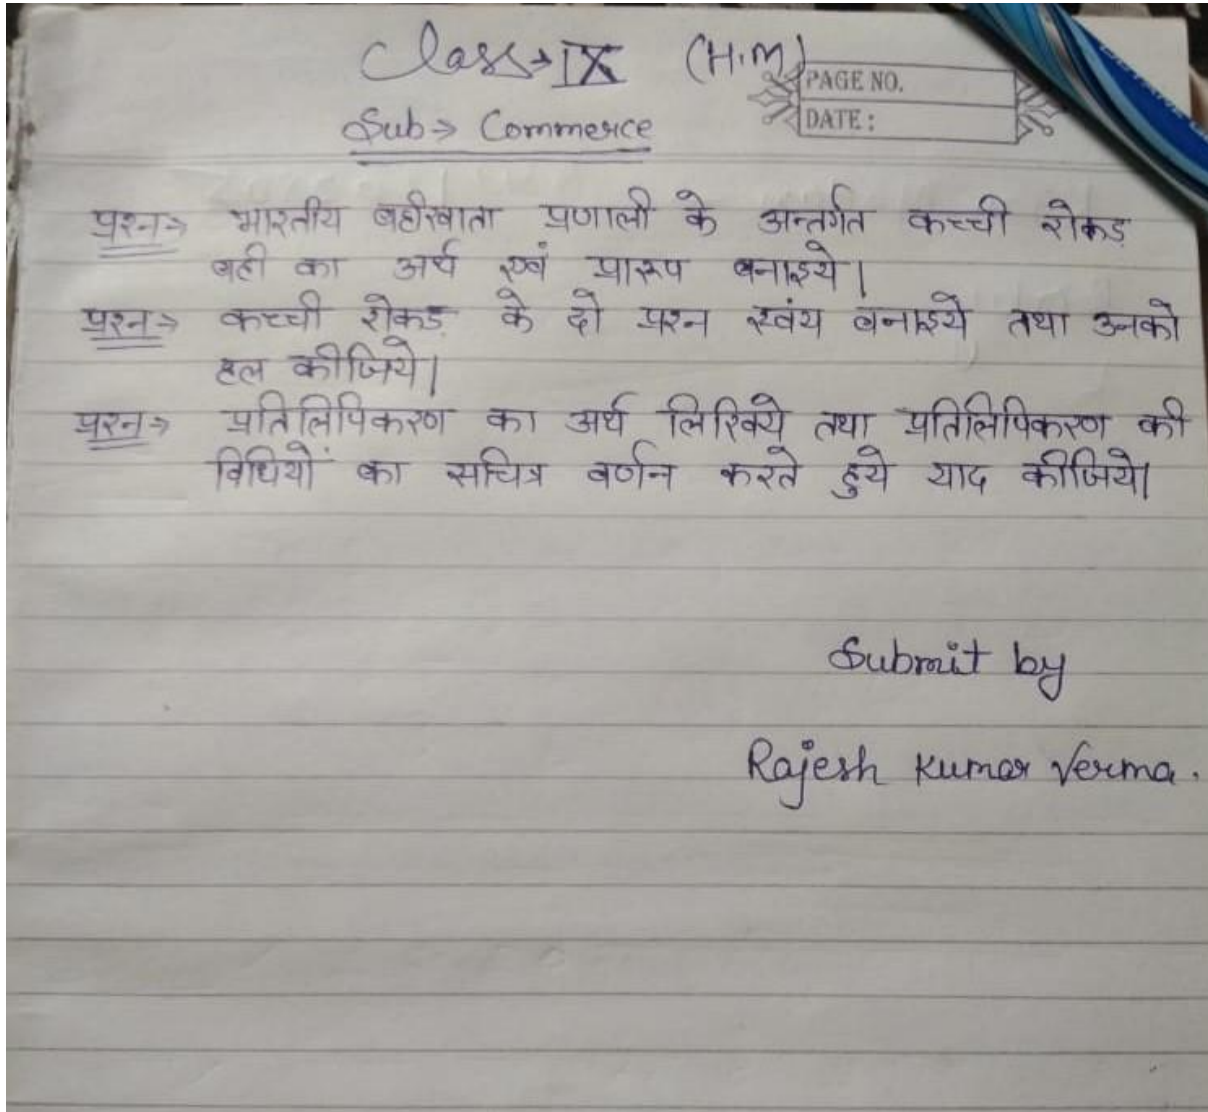 Class → IX (H.M)
PAGE NO.
DATE :
Sub → Commerce
प्रश्न → भारतीय बहीखाता प्रणाली के अन्तर्गत कच्ची रोकड़
बही का अर्थ एवं प्रारूप बनाइये।
प्रश्न → कच्ची रोकड़ के दो प्रश्न स्वंय बनाइये तथा उनको
हल कीजिये।
प्रश्न → प्रतिलिपिकरण का अर्थ लिखिये तथा प्रतिलिपिकरण की
विधियों का सचित्र वर्णन करते हुये याद कीजिये।
Submit by
Rajesh Kumar Verma.